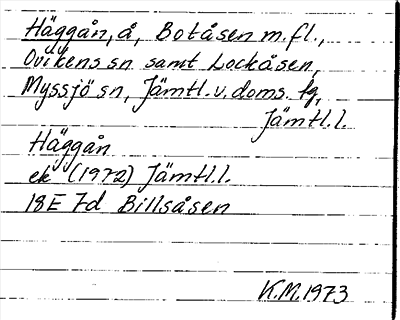 Häggån, å, Botåsen m.fl.,
Ovikens sn samt Lockåsen,
Myssjö sn, Jämtl.v.doms. tg,
Jämtl.l.
Häggån
ek (1972) Jämtl.l.
18E 7d Billsåsen
K.M. 1973